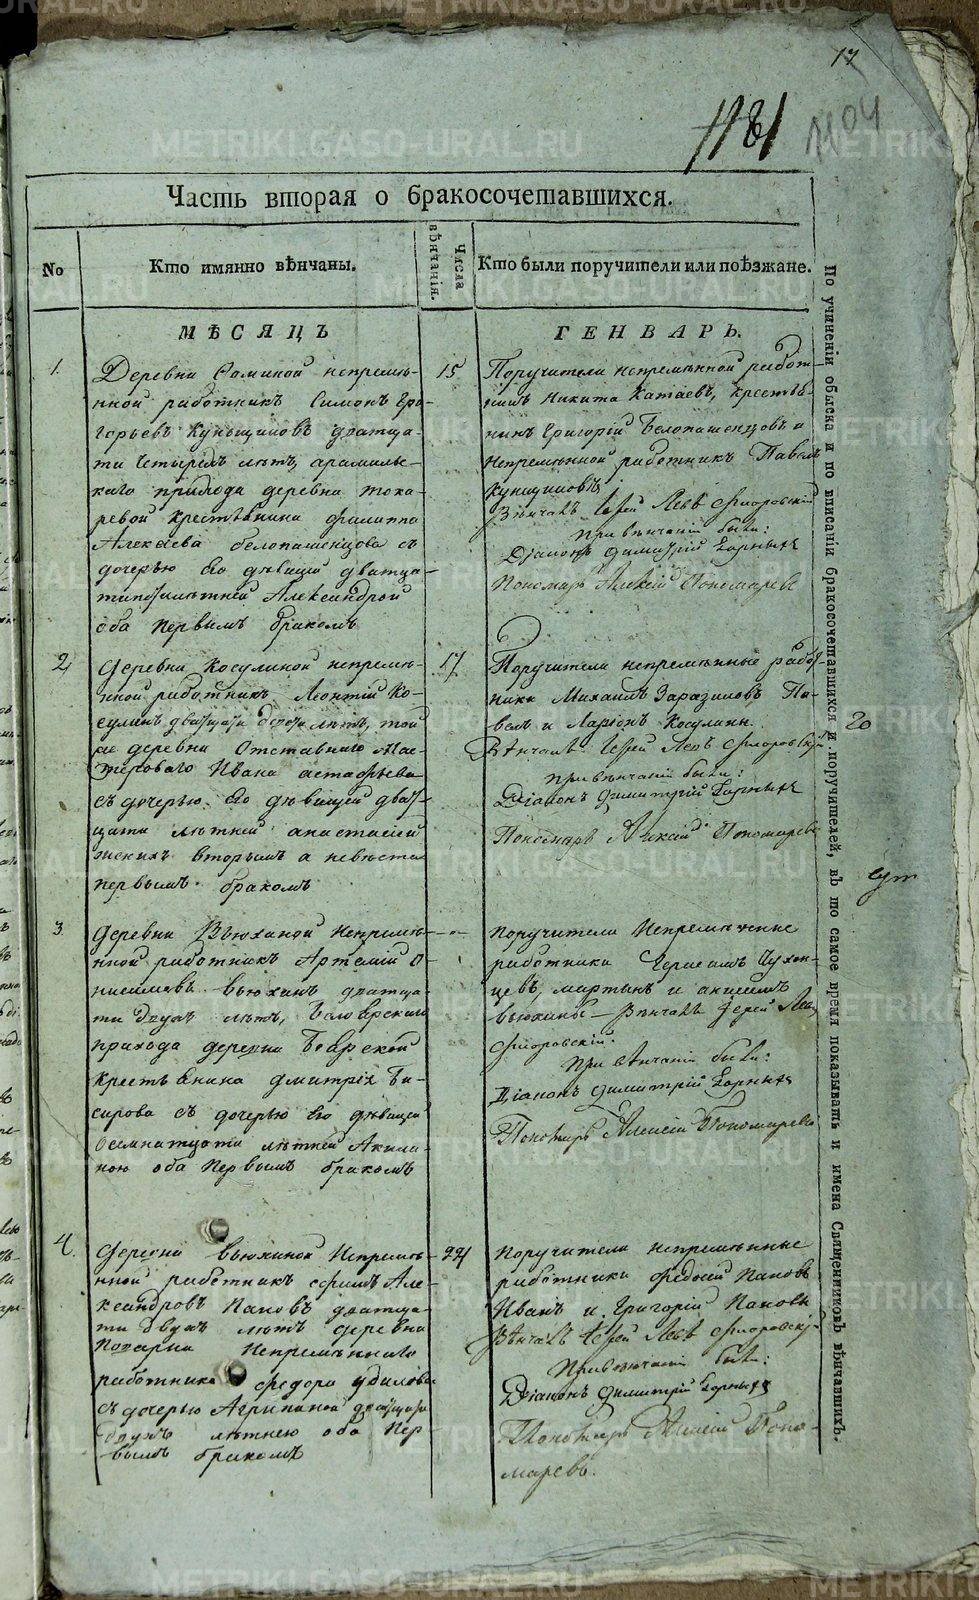 17
1181
1104
Часть вторая о бракосочетавшихся.
№
Кто имянно вѣнчаны.
Числа вѣнчанія.
Кто были поручители или поѣзжане.
МѢСЯЦЪ
ГЕНВАРЬ.
1.
Деревни непремѣ-
нной работникъ Симонъ Гри-
горьевъ Кунщиковъ дватца-
ти четырехъ лѣтъ, арамильс-
каго прихода деревни тока-
ревой крестьянина филиппа
Алексеева белопашенцова съ
дочерью Его дѣвицей дватца-
лѣтней Александрой
оба первымъ бракомъ
15
Поручители непремѣнной работ-
никъ Никита Катаевъ, крестья-
нинъ Григорій Белопашенцовъ и
непремѣнной работникъ Павелъ
Кунщиковъ
Вѣнчалъ Іерей Левъ Флоровскій
при вѣнчаніи были:
Діаконъ Димитрій
Пономарь Алексій Пономаревъ
2.
Деревни Косулиной непремѣ-
нной работникъ Леонтій Ко-
сулинъ лѣтъ, той
же деревни Отставнаго Мас-
тероваго Ивана астафьева
съ дочерью Его дѣвицей два-
цати лѣтней анастасіей
женихъ вторымъ а невѣста
первымъ бракомъ
17.
Поручители непремѣнные работ-
ники Михаилъ Заразиловъ, Па-
велъ и Ларіонъ Косулины.
Вѣнчалъ Іерей Левъ Флоровскій
при вѣнчаніи были:
Діаконъ Димитрій
Пономарь Алексій Пономаревъ
20
3.
деревни Вьюхиной Непремѣ-
нной работникъ Артемій О-
нисимовъ вьюхинъ дватца-
ти двухъ лѣтъ, Белоярскаго
прихода деревни Боярской
крестьянина дмитрія Ти-
сирова съ дочерью Его дѣвицей
осемнатцати лѣтней Акили-
ною оба первымъ бракомъ
поручители Непремѣнные
работники Чухон-
цевъ, мартынъ и анисимъ
вьюхины – Вѣнчалъ Іерей Левъ
Флоровскій.
При вѣнчаніи были:
Діаконъ Димитрій
Пономарь Алексій Пономаревъ
4.
Деревни вьюхиной Непремѣ-
нной работникъ ефимъ Але-
ксандровъ Пановъ дватца-
ти двухъ лѣтъ деревни
Непремѣннаго
работника федора удилова
съ дочерью Агрипиной дватцати
двухъ лѣтнею оба пер-
вымъ бракомъ
22
поручители непремѣнные
работники федосей Пановъ
Иванъ и Григорій Пановы
Вѣнчалъ Іерей Левъ Флоровскій
При вѣнчаніи были:
Діаконъ Димитрій
Пономарь Алексій Поно-
маревъ.
По учиненіи обыска и по вписаніи бракосочетавшихся и поручителей, въ то самое время показывать и имена Священниковъ вѣнчавшихъ.
METRIKI.GASO-URAL.RU